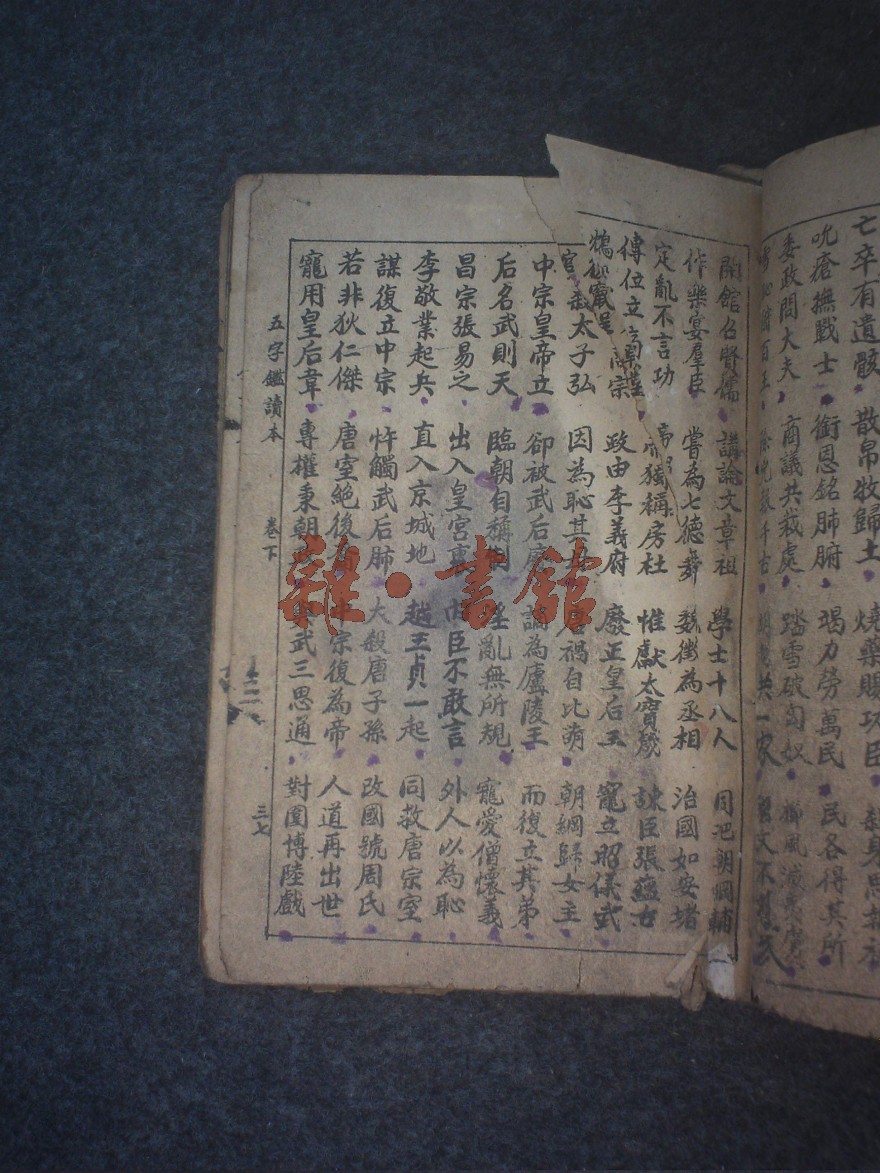 亡卒有遺骸 散帛收歸土 燒藥賜功臣 殺身思
吮瘡撫戰士 銜恩銘肺腑 竭力勞萬民 民各得其所
委政問大夫 商議共裁處 踏雪破匈奴 櫛風
共一家
開館召賢儒 講論文章祖 學士十八人 同 朝綱輔
作樂宴羣臣 嘗為七德舞 魏徵為丞相 治國如安堵
定亂不言功 獨稱房杜 惟獻太寶箴 諫臣張蘊古
傳位立高宗 政由李義府 廢正皇后王 寵立昭儀武
鴆 弒太子弘 因為恥其 唐禍自比萌 朝綱歸女主
中宗皇帝立 卻被武后廢 謫為廬陵王 而復立其弟
后名武則天 臨朝自稱制 淫亂無所規 寵愛僧懷義
昌宗張易之 出入皇宮裏 內臣不敢言 外人以為恥
李敬業起兵 直入京城地 越王貞一起 同救唐宗室
謀復立中宗 忤觸武后肺 大殺唐子孫 改國號周氏
若非狄仁傑 唐室絕後 中宗復為帝 人道再出世
寵用皇后韋 專權秉朝 武三思通 對圍博陸戲
五字鑑讀本 卷下 三七
雜·書館